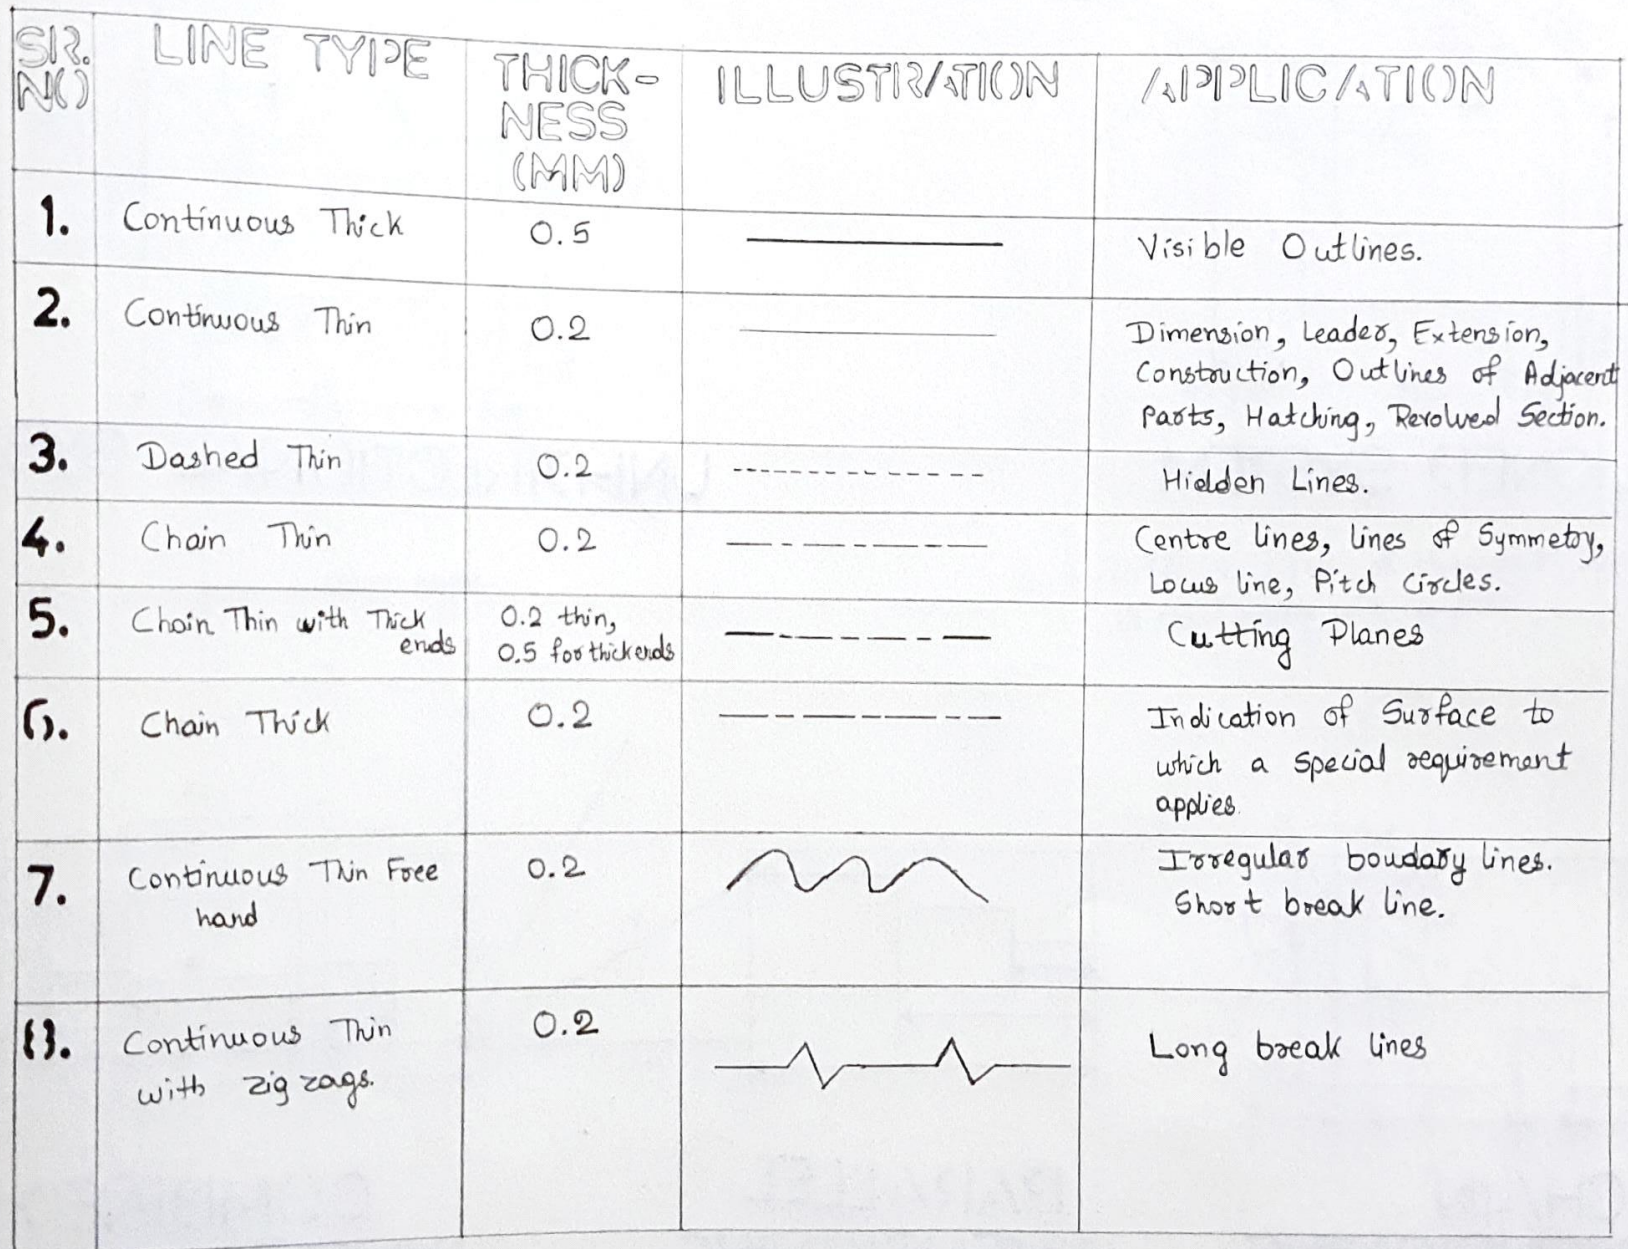 SR. NO
LINE TYPE
THICK-
NESS
(MM)
ILLUSTRATION
APPLICATION
1.
Continuous Thick
0.5
Visible Outlines.
2.
Continuous Thin
0.2
Dimension, Leader, Extension,
Construction, Outlines of Adjacent
Parts, Hatching, Revolved Section.
3.
Dashed Thin
0.2
Hidden Lines.
4.
Chain Thin
0.2
Centre lines, lines of Symmetry,
Locus line, Pitch Circles.
5.
Chain Thin with Thick
ends
0.2 thin,
0.5 for thick ends
Cutting Planes
6.
Chain Thick
0.2
Indication of Surface to
which a special requirement
applies.
7.
Continuous Thin Free
hand
0.2
Irregular boudary lines.
Short break line.
8.
Continuous Thin
with zig zags.
0.2
Long break lines